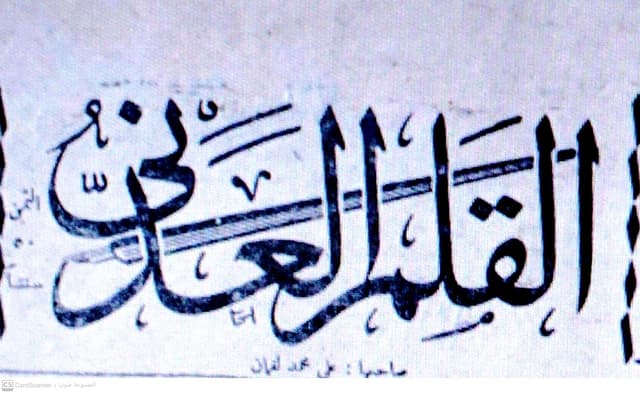 القلم العدني
الثمن
٥٠
سنتاً
صاحبها : علي محمد لقمان
CS CamScanner